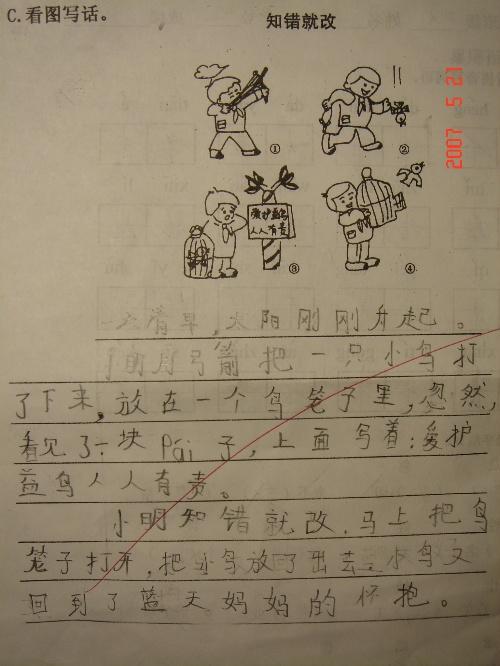 C.看图写话。
知错就改
!!
2007 5 21
①
②
爱护益鸟
人人有责
③
④
一大清早,太阳刚刚升起。
小明用弓箭把一只小鸟打
了下来,放在一个鸟笼子里,忽然,
看见了一块pái子,上面写着:爱护
益鸟人人有责。
小明知错就改.马上把鸟
笼子打开,把小鸟放了出去。小鸟又
回到了蓝天妈妈的怀抱。